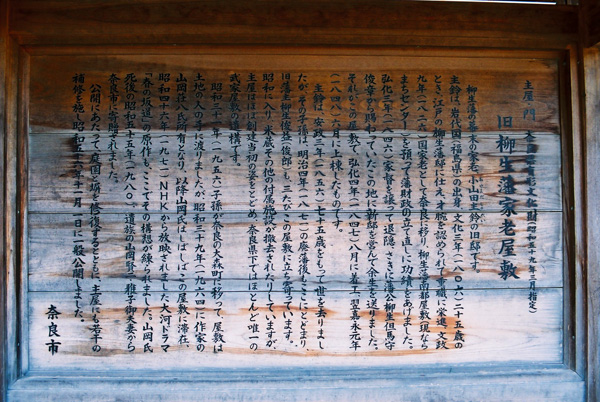 主屋・門
旧柳生藩家老屋敷
柳生藩の幕末の家老小山田主鈴の旧邸です。
主鈴は、岩代国(福島県)の出身。文化三年(一八〇六)二十五歳の
とき、江戸の柳生藩邸に仕え、才腕を認められて重職に栄進。文政
九年(一八二六)国家老として奈良に移り、柳生藩南都屋敷(現なら
まちセンター)を預って藩財政の立て直しに功績をあげました。
弘化三年(一八四六)家督を譲って退隠、さきに藩公柳生但馬守
俊章から賜わっていたこの地に新邸を営んで余生を送りました。
それがこの屋敷で、弘化四年(一八四七)八月に着工、翌嘉永元年
(一八四八)八月に上棟したものです。
主鈴は、安政三年(一八五六)七十五歳をもって世を去りまし
たが、その子孫は、明治四年(一八七一)の廃藩後もここにとどまり、
旧藩主柳生俊益(俊郎)も、三たびこの屋敷に立ち寄っています。
昭和に入り、米蔵その他の付属施設が撤去されたりしていますが、
主屋はほぼ創建当初の姿をとどめ、奈良県下ではほとんど唯一の
武家屋敷の遺構です。
昭和三十一年(一九五六)子孫が奈良の大森町に移って、屋敷は
土地の人の手に渡りましたが、昭和三九年(一九六四)に作家の
山岡荘八氏の所有となり、以降、山岡氏はしばしばこの屋敷に滞在、
昭和四十六年(一九七一)NHKから放映された大河ドラマ
「春の坂道」の原作も、ここでその構想が練られました。山岡氏
死後の昭和五十五年(一九八〇)、遺族の山岡賢二・雅子御夫妻から
奈良市に寄贈されました。
公開にあたって、庭園、石垣を修復するとともに、主屋にも若干の
補修を施し、昭和五十六年十一月一日に一般公開しました。
奈良市